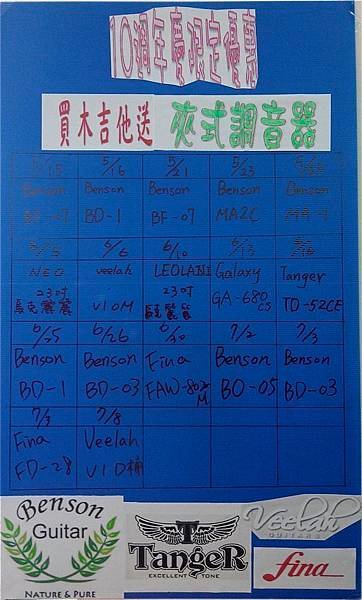 10週年慶限定優惠
買木吉他送 夾式調音器
5/16 5/21 5/23
Benson Benson Benson Benson Benson
BD-1 BF-07 MA2C
6/6 6/10 6/13
NEO veelah LEOLANI Galaxy Tanger
23吋 烏克麗麗 V10M 23吋 烏克麗麗 GA-680CS TD-52CE
6/25 6/26 6/30 7/2 7/3
Benson Benson Fina Benson Benson
BD-1 BD-03 FAW-802M BO-05 BD-03
7/3 7/8
Fina Veelah
FD-28 V1D桶
Benson
Guitar
NATURE & PURE
T
TANGER
EXCELLENT TONE
Veelah
GUITARS
fina